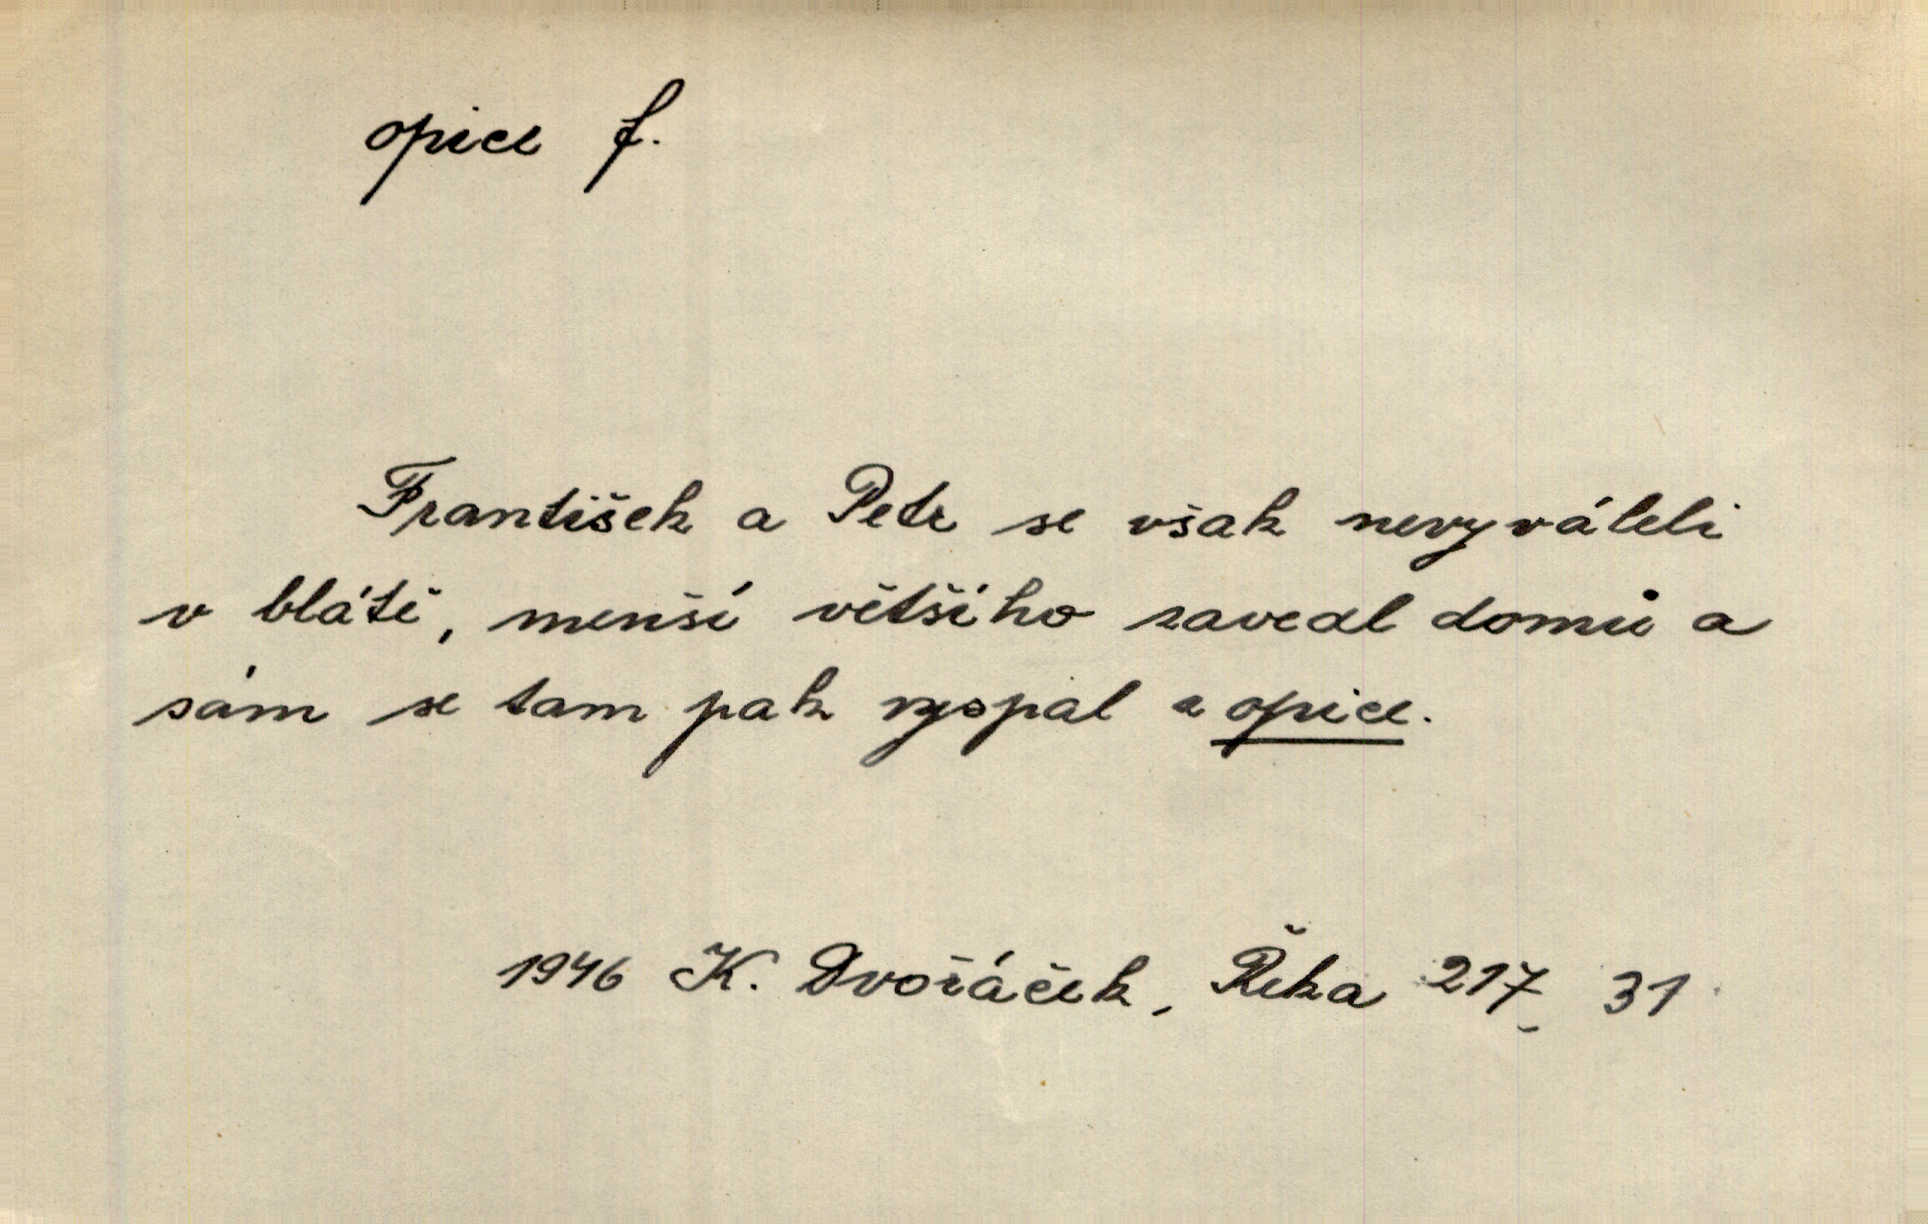 opice f.
František a Petr se však nevyváleli
v blátě, menší většího zavedl domů a
sám se tam pak vyspal z opice.
1946 K. Dvořáček, Řeka 217, 31